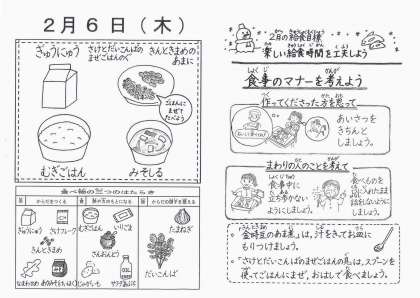 2月6日(木)
ぎゅうにゅう
さけとだいこんばの
まぜごはんのぐ
きんときまめの
あまに
ごはんに
まぜて
たべよう
むぎごはん
みそしる
食べ物の三つのはたらき
からだをつくる
熱や力のもとになる
からだの調子を整える
ぎゅうにゅう
さけフレーク
きんときまめ
むぎごはん
いりごま
さんおんとう
じゃがいも
サラダあぶら
たまねぎ
だいこんば
2月の給食目標
楽しい給食時間を工夫しよう
食事のマナーを考えよう
作ってくださった方を思って
あいさつを
きちんと
しましょう。
まわりの人のことを考えて
食事中に
立ち歩かない
ようにしましょう。
食べものを
口に入れたまま
話をしないように
しましょう。
・「金時豆のあま煮」は、汁をきってお皿に
もりつけましょう。
・「さけとだいこんばのまぜごはんの具」は、スプーンを
使ってごはんにまぜ、おはしで食べましょう。